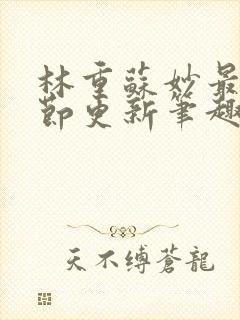 林重蘇妙最
節更新筆趣
天不缚蒼龍